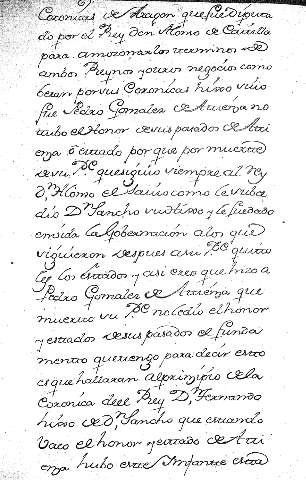 Coronicas de Aragon que fue diputa
do por el Rey don Alonso de Castilla
para amoxonar los terminos de
ambos Reynos y otros negocios como
beran por sus Coronicas hixo suio
fue Pedro Gomales de Atienza no
tubo el Honor de sus pasados de Ati
enza o estado por que por muerte
de su P.e que siguio siempre al Rey
D.n Alonso el Sauio como le subce
dio D.n Sancho su hixo y le fue dado
en vida la Gobernacion a los que
siguieron despues a su P.e quito
les los estados y asi creo que hizo a
Pedro Gomales de Atienza que
muerto su P.e no le dio el honor
y estados de sus pasados el funda
mento que tengo para decir esto
es que hallaran al prinzipio de la
Coronica de el Rey D.n Fernando
hixo de D.n Sancho que estando
Vaco el honor y estado de Ati
enza hubo este Infante esta